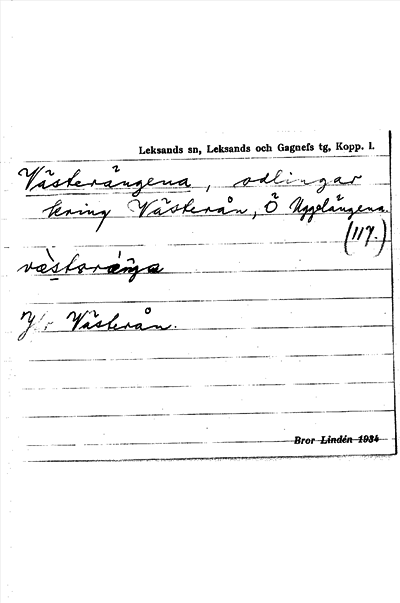 Leksands sn, Leksands och Gagnefs tg, Kopp. l.
Västerängena, odlingar
kring Västerån, Ö Uggelängena.
(117.)
Jfr Västerån.
Bror Lindén 1934